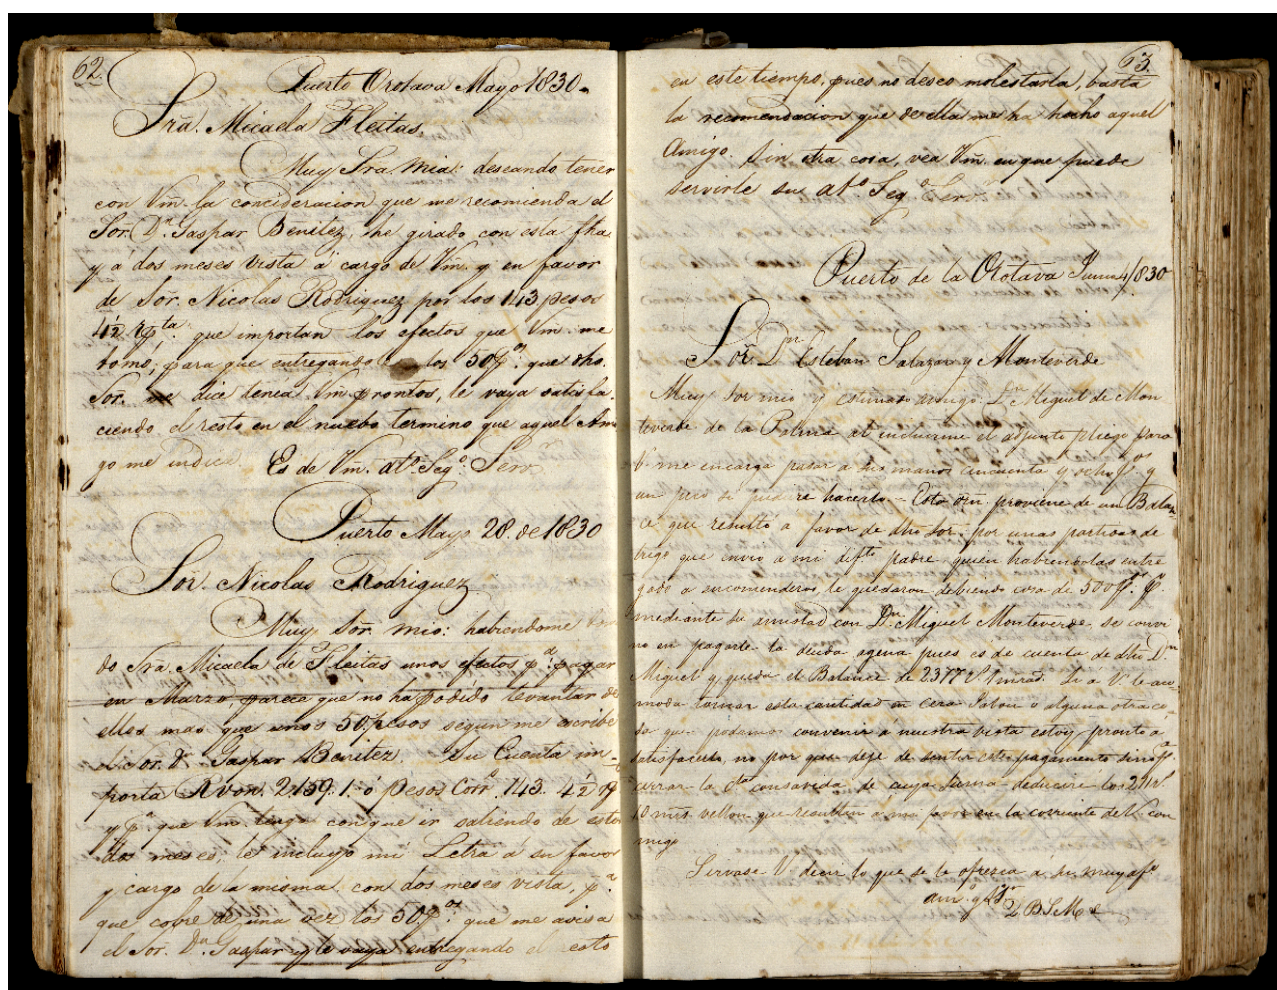 62.
Puerto Orotava Mayo 1830.
Sra. Micaela Fleitas
Muy Sra. Mia: deseando tener
con Vm. la concideracion que me recomienda el
Sor. Dn. Gaspar Benitez, he girado con esta fha
y á dos meses vista á cargo de Vm. y en favor
de Sor. Nicolas Rodriguez por los 143 pesos
que importan los efectos que Vm. me
tomó, para que entregando los 50 ps. que dho.
Sor. dice tenia Vm. prontos, le vaya satisfa-
ciendo el resto en el nuebo termino que aquel Ami
go me indica. Es de Vm. ato. Sego. Servr.
Puerto Mayo 28. de 1830
Sor. Nicolas Rodriguez
Muy Sor. mio: habiendome
do Sra. Micaela de Fleitas unos efectos pa. pagar
en Marzo, parece que no ha podido levantar de
ellos mas que unos 50. pesos segun me escribe
el Sor. Dn. Gaspar Benitez. Su Cuenta im-
porta Rvon. 2159.. 1. ó pesos Corrs. 143.
y pa. que Vm. tenga con que ir saliendo de estos
dos meses, le incluyo mi Letra á su favor
y cargo de la misma con dos meses vista, pa.
que cobre de una vez los 50 ps. que me avisa
el Sor. Dn. Gaspar y le vaya entregando el resto
63
en este tiempo, pues no deseo molestarla, basta
la recomendacion que de ella me ha hecho aquel
Amigo. Sin otra cosa, vea Vm. en que puede
servirle su ato. Sego. Servr.
Puerto de la Orotava Junio 4/830
Sor. Dn. Esteban Salazar y Monteverde
Muy Sor mio y estimado amigo: Dn. Miguel de Mon
teverde de la Palma al incluirme el adjunto pliego para
V. me encarga pasar a sus manos cincuenta y ocho ps. y
un peso si pudiere hacerlo - Esta orn. proviene de un Balan
ce que resultó a favor de dho Sor. por unas partidas de
trigo que envió a mi dift. padre quien habiendolas entre
gado a encomenderos, le quedaron debiendo cosa de 500 ps. ps.
mediante su amistad con Dn. Miguel Monteverde se convi
no en pagarle la deuda agena pues es de cuenta de dho Dn.
Miguel y queda el Balance de 2377 Si a V. le aco
moda tomar esta cantidad en cera Jabon ó alguna otra co-
sa que podamos convenir a nuestra vista estoy pronto a
satisfacerla, no por que deje de sentir este pagamento sino pr.
cerrar la cta. consavida de cuya suma deducire los
10 mrs vellon que resultan a mi favor en la corriente de V. con
migo
Sirvase V. decir lo que se le ofrezca á su muy afo.
amo. y
Q B S M